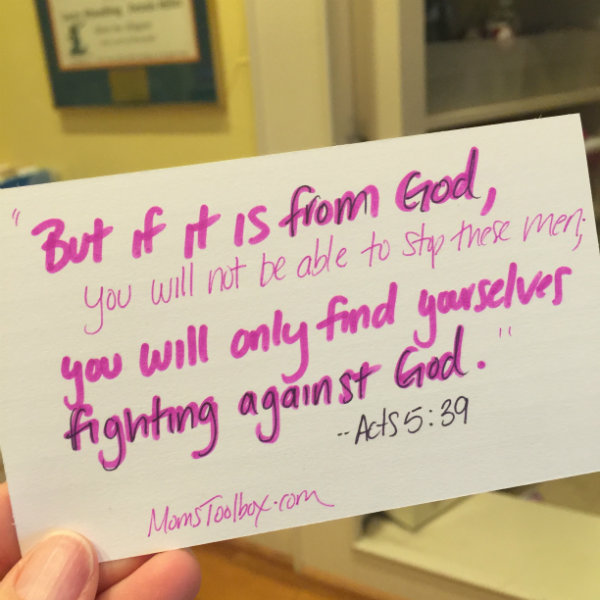 "But if it is from God,
you will not be able to stop these men;
you will only find yourselves
fighting against God."
-- Acts 5:39
MomsToolbox.com